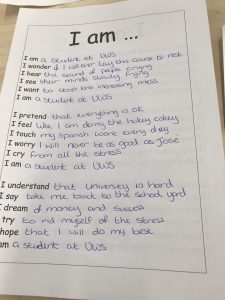 I am ...
I am a student at UWS
I wonder if I will ever lay this course to rest
I hear the sound of people crying
I see their minds slowly frying
I want to stop this increasing mess
I am a student at UWS
I pretend that everything is ok
I feel like I am doing the hokey cokey
I touch my spanish work every day
I worry I will never be as good as José
I cry from all the stress
I am a student at UWS
I understand that university is hard
I say take me back to the school yard
I dream of money and success
I try to rid myself of the stress
I hope that I will do my best
I am a student at UWS